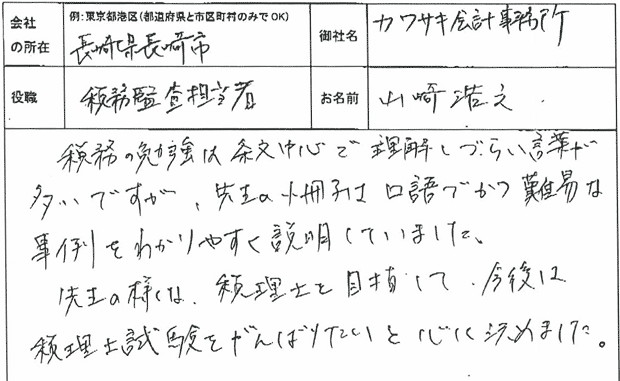 会社の所在
例:東京都港区(都道府県と市区町村のみでOK)
長崎県長崎市
御社名
カワサキ会計事務所
役職
税務監査担当者
お名前
山崎浩之
税務の勉強は条文中心で理解しづらい言葉が
多いですが、先生の小冊子は口語でかつ難易な
事例をわかりやすく説明していました。
先生の様な、税理士を目指して、今後は
税理士試験をがんばりたいと心に決めました。